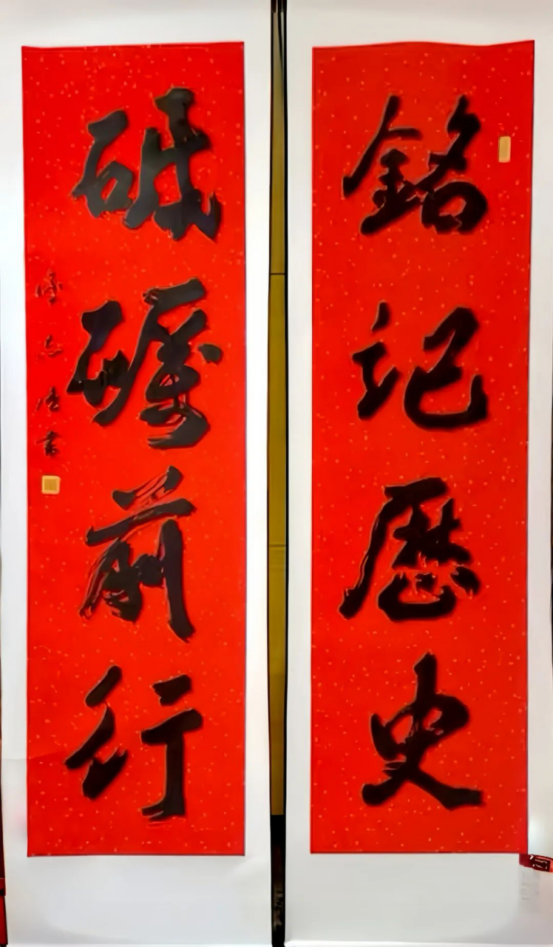 銘記歷史
砥礪前行